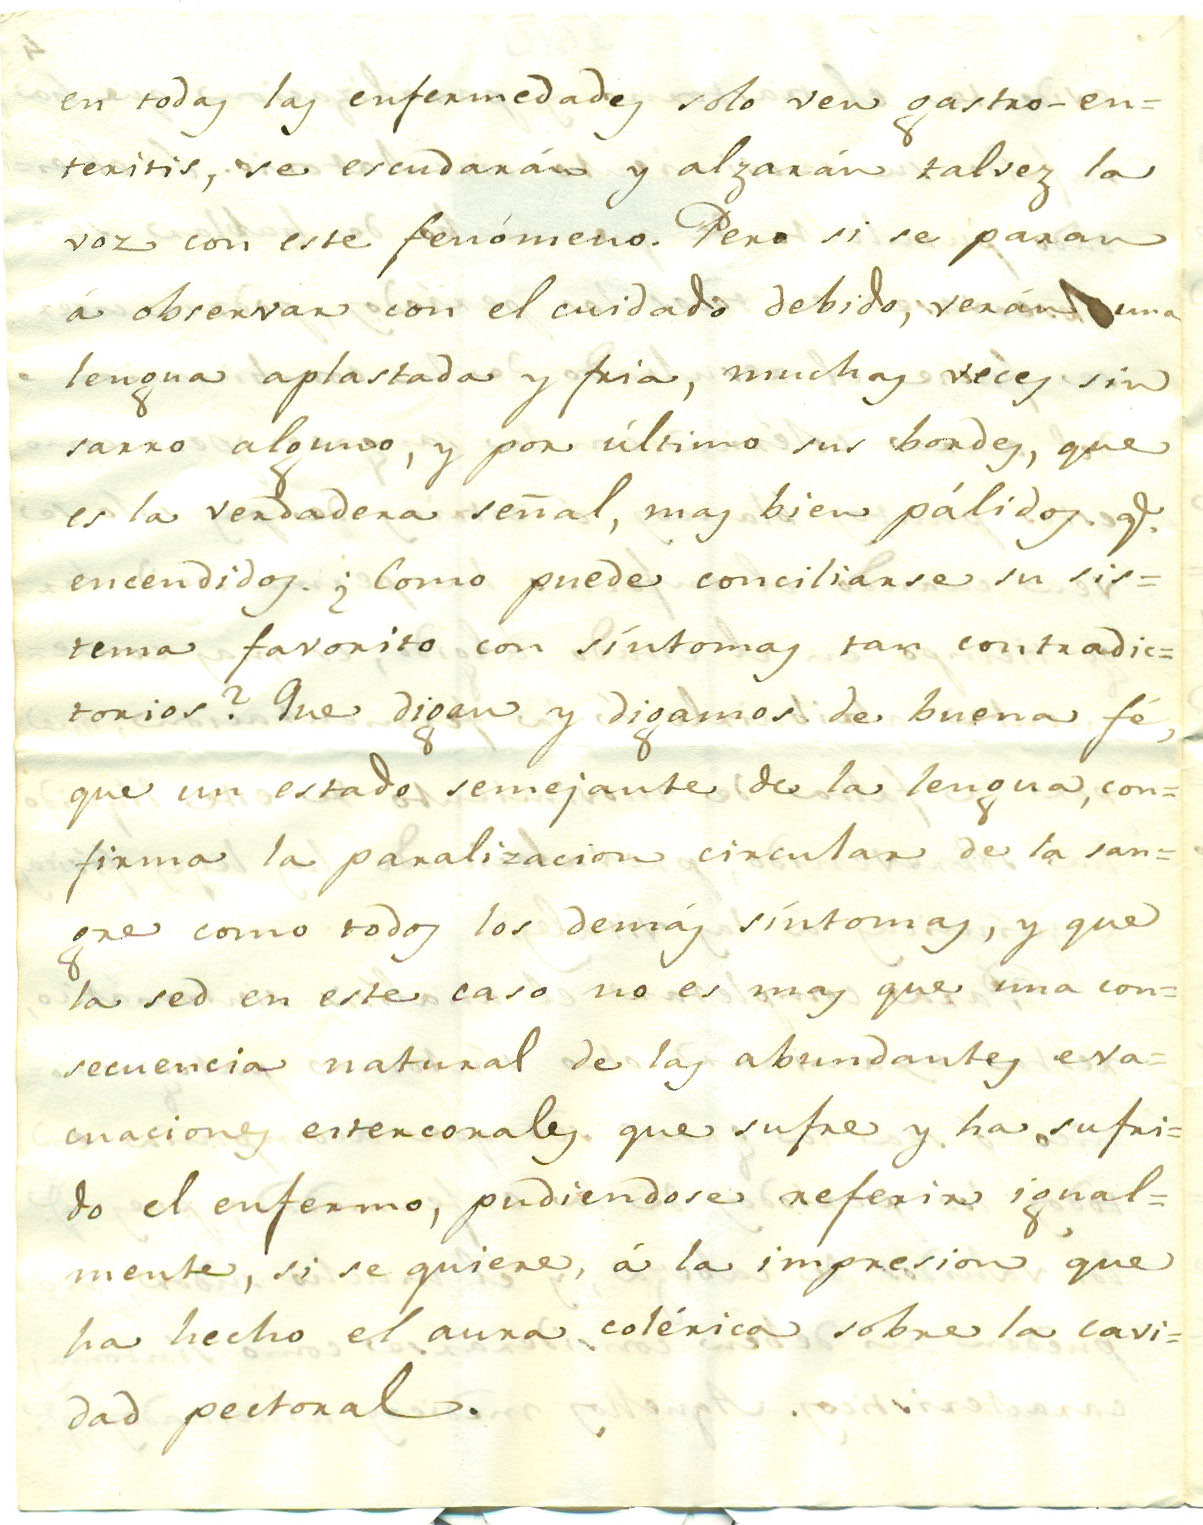 en todas las enfermedades solo ven gastro-en=
teritis, se escudarán y alzarán talvez la
voz con este fenómeno. Pero si se paran
á observar con el cuidado debido, verán una
lengua aplastada y fria, muchas veces sin
sarro alguno, y por último sus bordes, que
es la verdadera señal, mas bien pálidos q.
encendidos. ¿Como puede conciliarse su sis=
tema favorito con síntomas tan contradic=
torios? Que digan y digamos de buena fé,
que un estado semejante de la lengua, con=
firma la paralizacion circular de la san=
gre como todos los demás síntomas, y que
la sed en este caso no es mas que una con=
secuencia natural de las abundantes eva=
cuaciones estercorales que sufre y ha sufri=
do el enfermo, pudiendose referir igual=
mente, si se quiere, á la impresion que
ha hecho el aura colérica sobre la cavi=
dad pectoral.